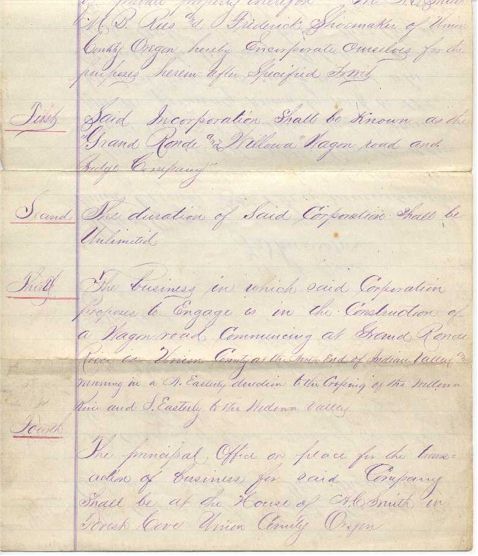 M B Rees & Frederick Shoemaker of Union
County Oregon, hereby Encorporate Ourselves for the
purposes herein after Specified To wit
First
Said Incorporation Shall be Known as the
"Grand Ronde and Willowa" Wagon road and
Bridge Company"
Second
The duration of Said Corporation Shall be
Unlimited
Third
The business in which said Corporation
proposes to Engage is in the Construction of
a Wagon road Commencing at Grand Ronde
River in Union County at the lower End of Indian Valley &
running in a N. Easterly direction to the Crossing of the
River and S. Easterly to the Valley
Fourth
The principal Office or place for the trans-
action of business for said Company
Shall be at the House of Smith in
Cove Union County Oregon